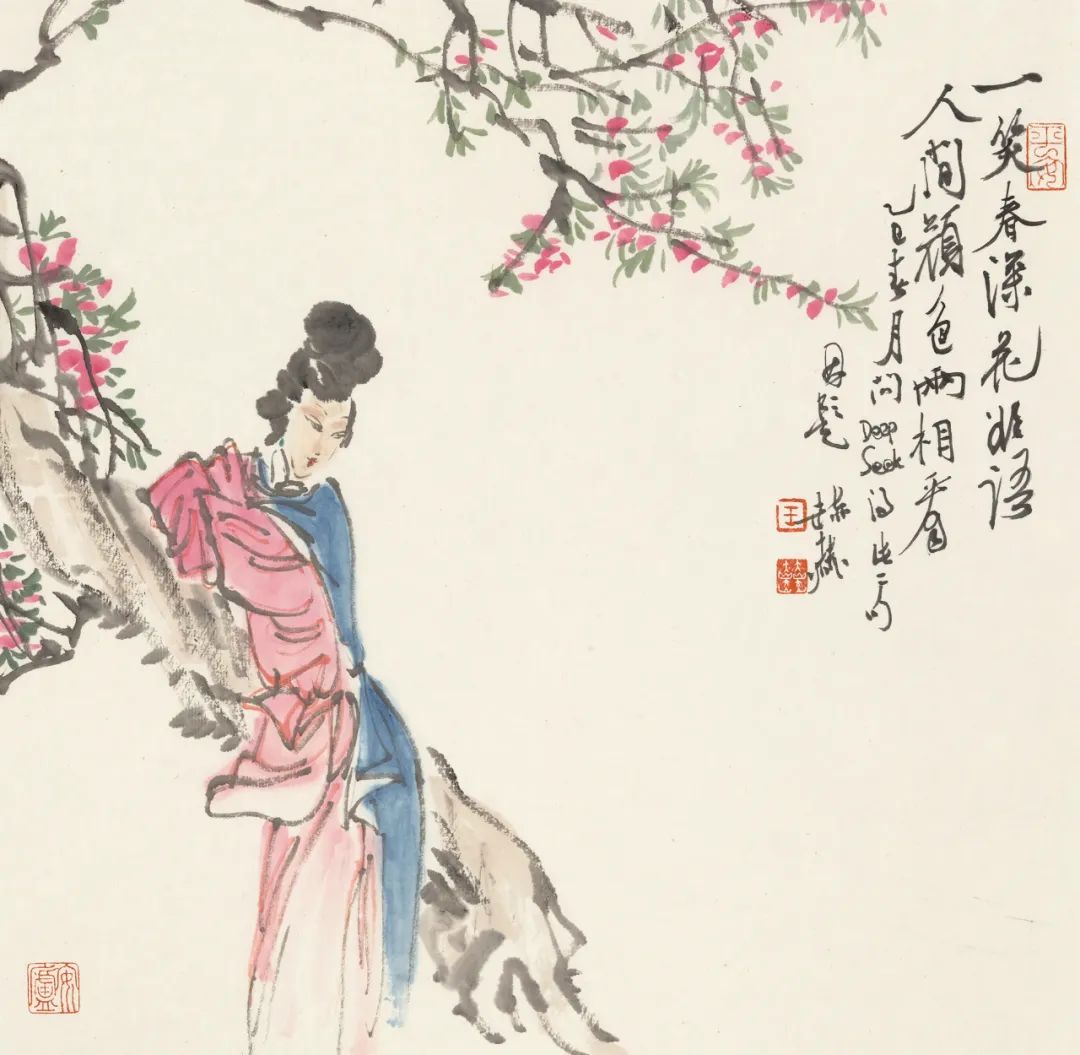 一笑春深花非语
人间颜色两相看
乙巳春月问Deep Seek得此句
因题
王